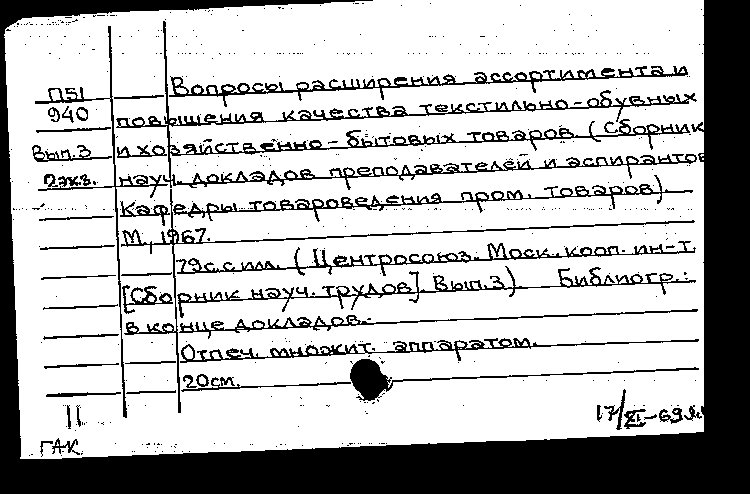 П51
940
Вып.3
2экз.
Вопросы расширения ассортимента и
повышения качества текстильно-обувных
и хозяйственно-бытовых товаров. (Сборник
науч. докладов преподавателей и аспирантов
Кафедры товароведения пром. товаров).
М., 1967.
79с. с илл. (Центросоюз. Моск. кооп. ин-т.
[Сборник науч. трудов]. Вып.3). Библиогр.:
в конце докладов.
Отпеч. множит. аппаратом.
20см.
11
17/XI-69
ГАК